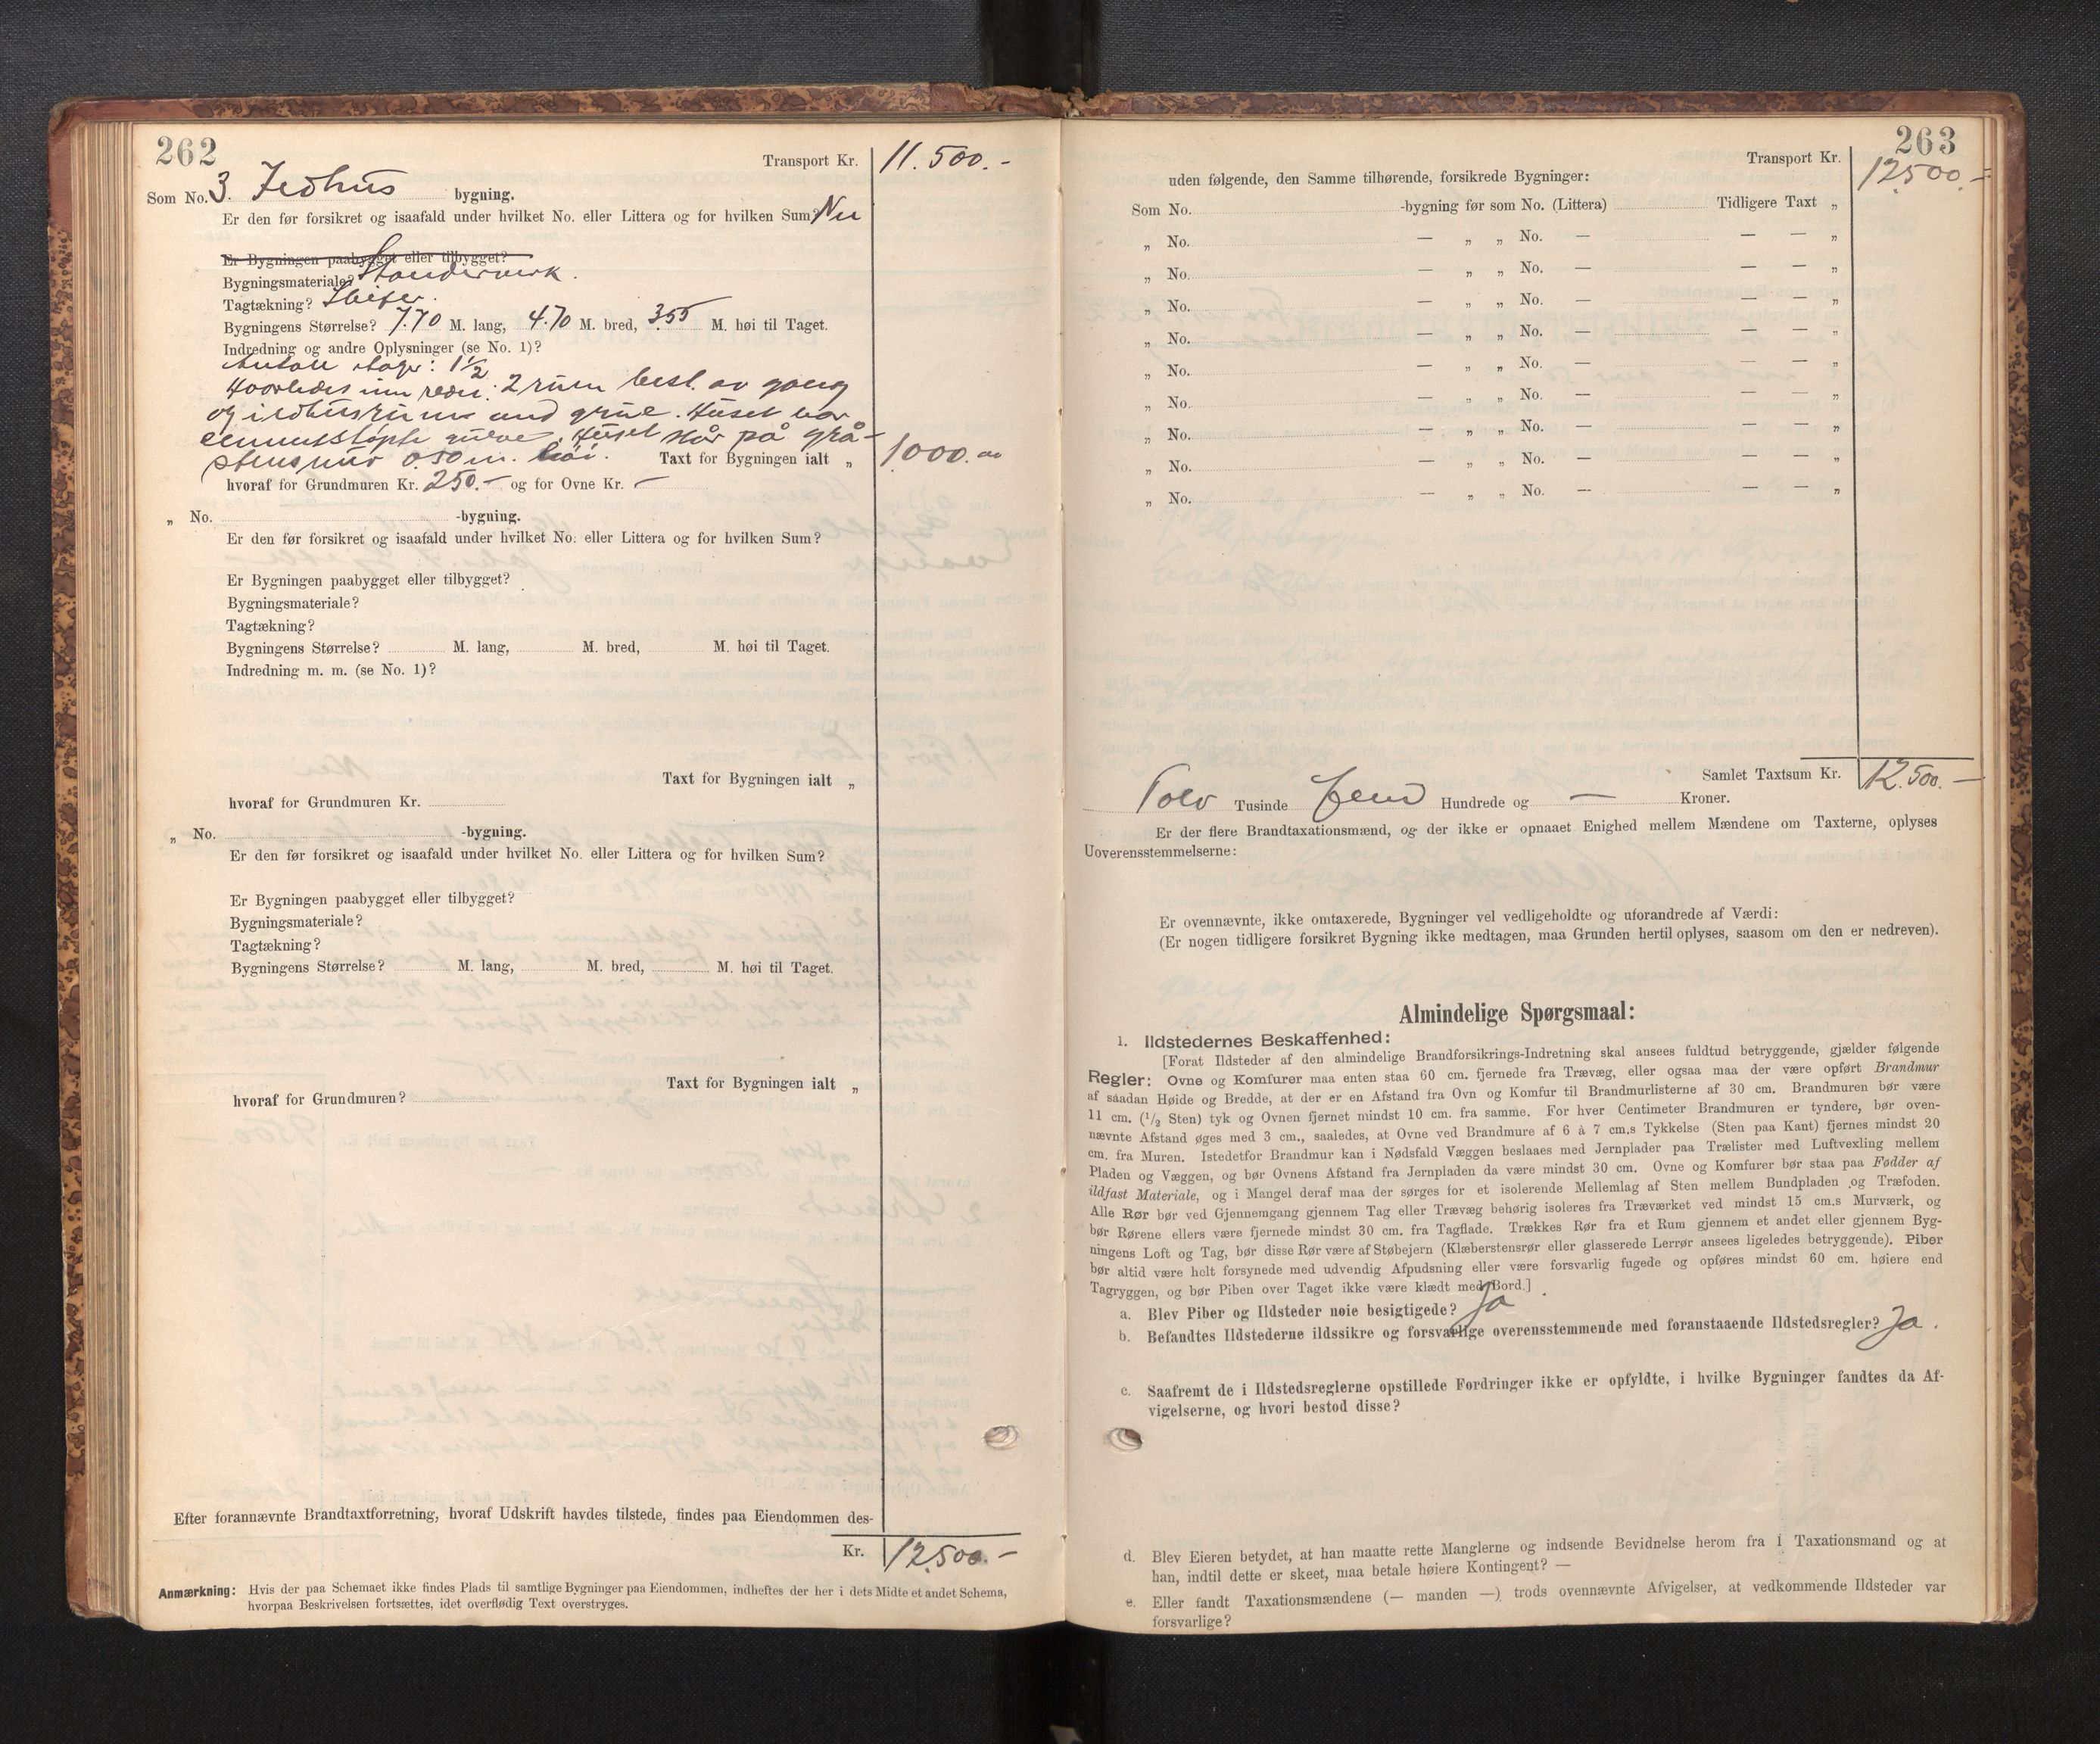 262
Transport Kr. 11.500.-
Som No. 3. Ildhus bygning.
Er den før forsikret og isaafald under hvilket No. eller Littera og for hvilken Sum? Nei
Er Bygningen paabygget eller tilbygget?
Bygningsmateriale? Standerverk.
Tagtækning? Skifer.
Bygningens Størrelse? 7.70 M. lang, 4.70 M. bred, 3.55 M. høi til Taget.
Indredning og andre Oplysninger (se No. 1)?
Antall etager: 1½
Hvorledes innredet: 2 rum best. av gang
og ildhusrum med grue. Huset har
cementstøpte gulve. Huset står på grå-
stensmur 0.50 m. høi. Taxt for Bygningen ialt „ 1000.00
hvoraf for Grundmuren Kr. 250.- og for Ovne Kr. -
„ No. -bygning.
Er den før forsikret og isaafald under hvilket No. eller Littera og for hvilken Sum?
Er Bygningen paabygget eller tilbygget?
Bygningsmateriale?
Tagtækning?
Bygningens Størrelse? M. lang, M. bred, M. høi til Taget.
Indredning m. m. (se No. 1)?
Taxt for Bygningen ialt „
hvoraf for Grundmuren Kr.
„ No. -bygning.
Er den før forsikret og isaafald under hvilket No. eller Littera og for hvilken Sum?
Er Bygningen paabygget eller tilbygget?
Bygningsmateriale?
Tagtækning?
Bygningens Størrelse? M. lang, M. bred, M. høi til Taget.
Taxt for Bygningen ialt „
hvoraf for Grundmuren?
Efter forannævnte Brandtaxtforretning, hvoraf Udskrift havdes tilstede, findes paa Eiendommen des-
Kr. 12.500.-
Anmærkning: Hvis der paa Schemaet ikke findes Plads til samtlige Bygninger paa Eiendommen, indheftes der her i dets Midte et andet Schema,
hvorpaa Beskrivelsen fortsættes, idet overflødig Text overstryges.
263
Transport Kr. 12.500.-
uden følgende, den Samme tilhørende, forsikrede Bygninger:
Som No. -bygning før som No. (Littera) Tidligere Taxt „
„ No. — „ „ No. — — — „
„ No. — „ „ No. — — — „
„ No. — „ „ No. — — — „
„ No. — „ „ No. — — — „
„ No. — „ „ No. — — — „
„ No. — „ „ No. — — — „
„ No. — „ „ No. — — — „
„ No. — „ „ No. — — — „
„ No. — „ „ No. — — — „
Samlet Taxtsum Kr. 12.500.-
Tolv Tusinde fem Hundrede og — Kroner.
Er der flere Brandtaxationsmænd, og der ikke er opnaaet Enighed mellem Mændene om Taxterne, oplyses
Uoverensstemmelserne:
Er ovennævnte, ikke omtaxerede, Bygninger vel vedligeholdte og uforandrede af Værdi:
(Er nogen tidligere forsikret Bygning ikke medtagen, maa Grunden hertil oplyses, saasom om den er nedreven).
Almindelige Spørgsmaal:
1. Ildstedernes Beskaffenhed:
[Forat Ildsteder af den almindelige Brandforsikrings-Indretning skal ansees fuldtud betryggende, gjælder følgende
Regler: Ovne og Komfurer maa enten staa 60 cm. fjernede fra Trævæg, eller ogsaa maa der være opført Brandmur
af saadan Høide og Bredde, at der er en Afstand fra Ovn og Komfur til Brandmurlisterne af 30 cm. Brandmuren bør være
11 cm. (1/2 Sten) tyk og Ovnen fjernet mindst 10 cm. fra samme. For hver Centimeter Brandmuren er tyndere, bør oven-
nævnte Afstand øges med 3 cm., saaledes, at Ovne ved Brandmure af 6 à 7 cm.s Tykkelse (Sten paa Kant) fjernes mindst 20
cm. fra Muren. Istedetfor Brandmur kan i Nødsfald Væggen beslaaes med Jernplader paa Trælister med Luftvexling mellem
Pladen og Væggen, og bør Ovnens Afstand fra Jernpladen da være mindst 30 cm. Ovne og Komfurer bør staa paa Fødder af
ildfast Materiale, og i Mangel deraf maa der sørges for et isolerende Mellemlag af Sten mellem Bundpladen og Træfoden.
Alle Rør bør ved Gjennemgang gjennem Tag eller Trævæg behørig isoleres fra Træværket ved mindst 15 cm.s Murværk, og
bør Rørene ellers være fjernede mindst 30 cm. fra Tagflade. Trækkes Rør fra et Rum gjennem et andet eller gjennem Byg-
ningens Loft og Tag, bør disse Rør være af Støbejern (Klæberstensrør eller glasserede Lerrør ansees ligeledes betryggende). Piber
bør altid være holt forsynede med udvendig Afpudsning eller være forsvarlig fugede og opføres mindst 60 cm. høiere end
Tagryggen, og bør Piben over Taget ikke være klædt med Bord.]
a. Blev Piber og Ildsteder nøie besigtigede? Ja
b. Befandtes Ildstederne ildssikre og forsvarlige overensstemmende med foranstaaende Ildstedsregler? Ja.
c. Saafremt de i Ildstedsreglerne opstillede Fordringer ikke er opfyldte, i hvilke Bygninger fandtes da Af-
vigelserne, og hvori bestod disse?
d. Blev Eieren betydet, at han maatte rette Manglerne og indsende Bevidnelse herom fra 1 Taxationsmand og at
han, indtil dette er skeet, maa betale høiere Kontingent? —
e. Eller fandt Taxationsmændene (— manden —) trods ovennævnte Afvigelser, at vedkommende Ildsteder var
forsvarlige?